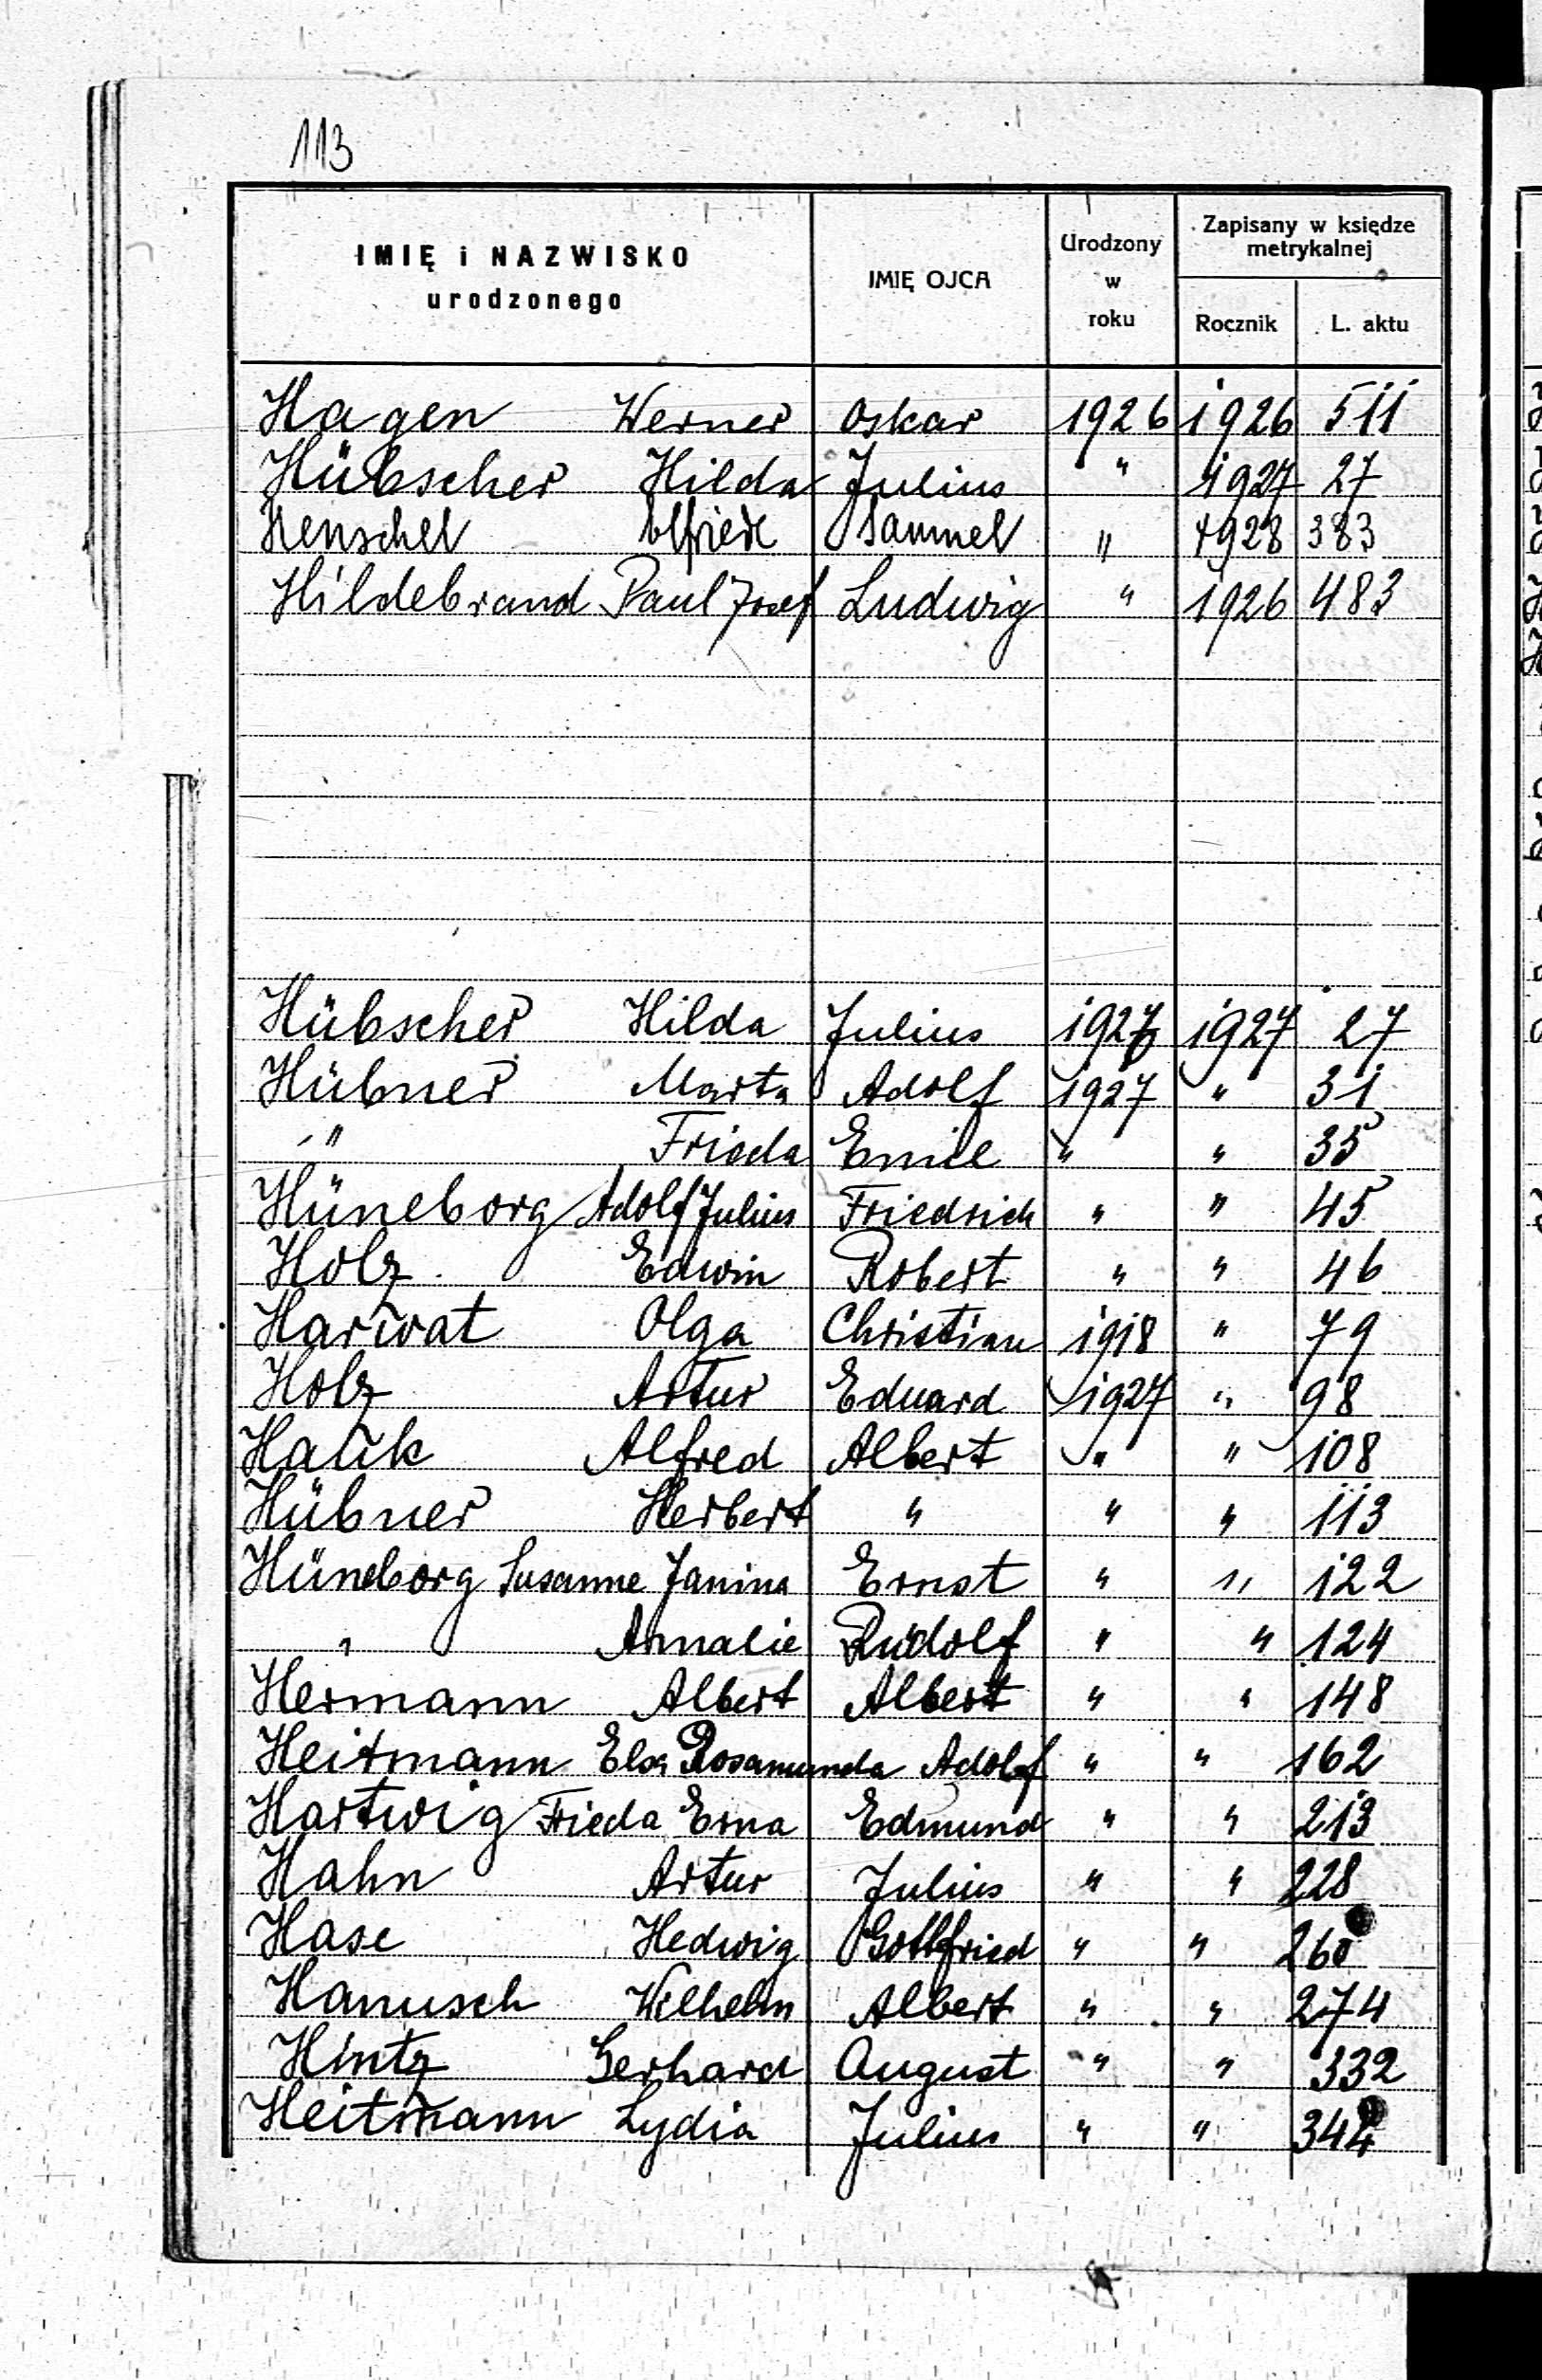 113
IMIĘ i NAZWISKO urodzonego IMIĘ OJCA Urodzony w roku Zapisany w księdze metrykalnej Rocznik L. aktu
Hagen Werner Oskar 1926 1926 511
Hübscher Hilda Julius " 1927 27
Henschel Elfriede Samuel " 1928 383
Hildebrand Paul Josef Ludwig " 1926 483
Hübscher Hilda Julius 1927 1927 27
Hübner Marta Adolf 1927 " 31
" Frieda Emil " " 35
Hüneborg Adolf Julius Friedrich " " 45
Holz Edwin Robert " " 46
Harwat Olga Christian 1918 " 79
Holz Artur Eduard 1927 " 98
Hauk Alfred Albert " " 108
Hübner Herbert " " " 113
Hüneborg Susanne Janina Ernst " " 122
" Amalie Rudolf " " 124
Hermann Albert Albert " " 148
Heitmann Elsa Rosamunda Adolf " " 162
Hartwig Frieda Erna Edmund " " 213
Hahn Artur Julius " " 228
Hase Hedwig Gottfried " " 260
Hanusch Wilhelm Albert " " 274
Hintz Gerhard August " " 332
Heitmann Lydia Julius " " 344